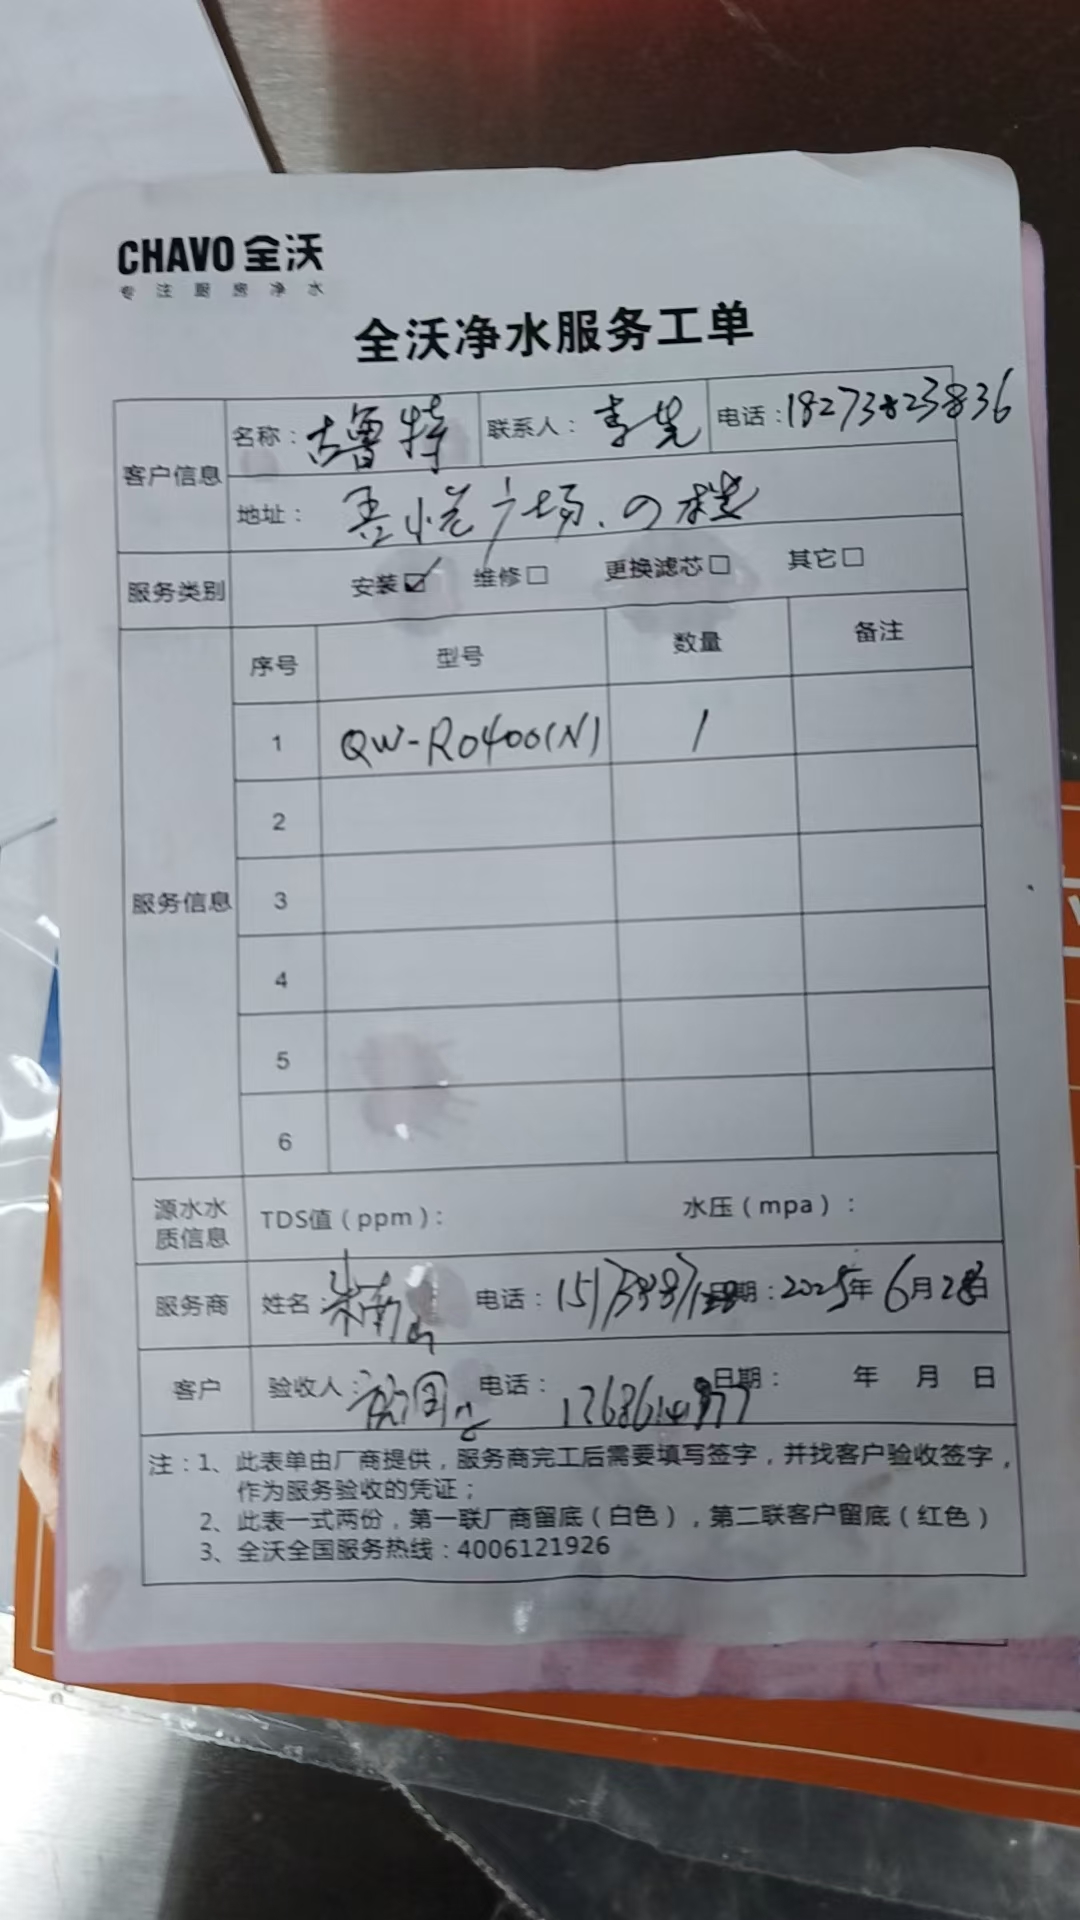 CHAVO 全沃
专注厨房净水
全沃净水服务工单
客户信息 名称：古鲁特 联系人：李先 电话：18273823836
地址：吾悦广场、4楼
服务类别 安装☑ 维修□ 更换滤芯□ 其它□
服务信息 序号 型号 数量 备注
1 QW-RO400(N) 1
2
3
4
5
6
源水水质信息 TDS值（ppm）： 水压（mpa）：
服务商 姓名： 电话： 日期：2025年6月28日
客户 验收人： 电话： 日期： 年 月 日
注：1、此表单由厂商提供，服务商完工后需要填写签字，并找客户验收签字，
作为服务验收的凭证；
2、此表一式两份，第一联厂商留底（白色），第二联客户留底（红色）
3、全沃全国服务热线：4006121926